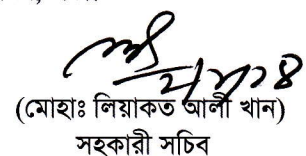 (মোহাঃ লিয়াকত আলী খান)
সহকারী সচিব